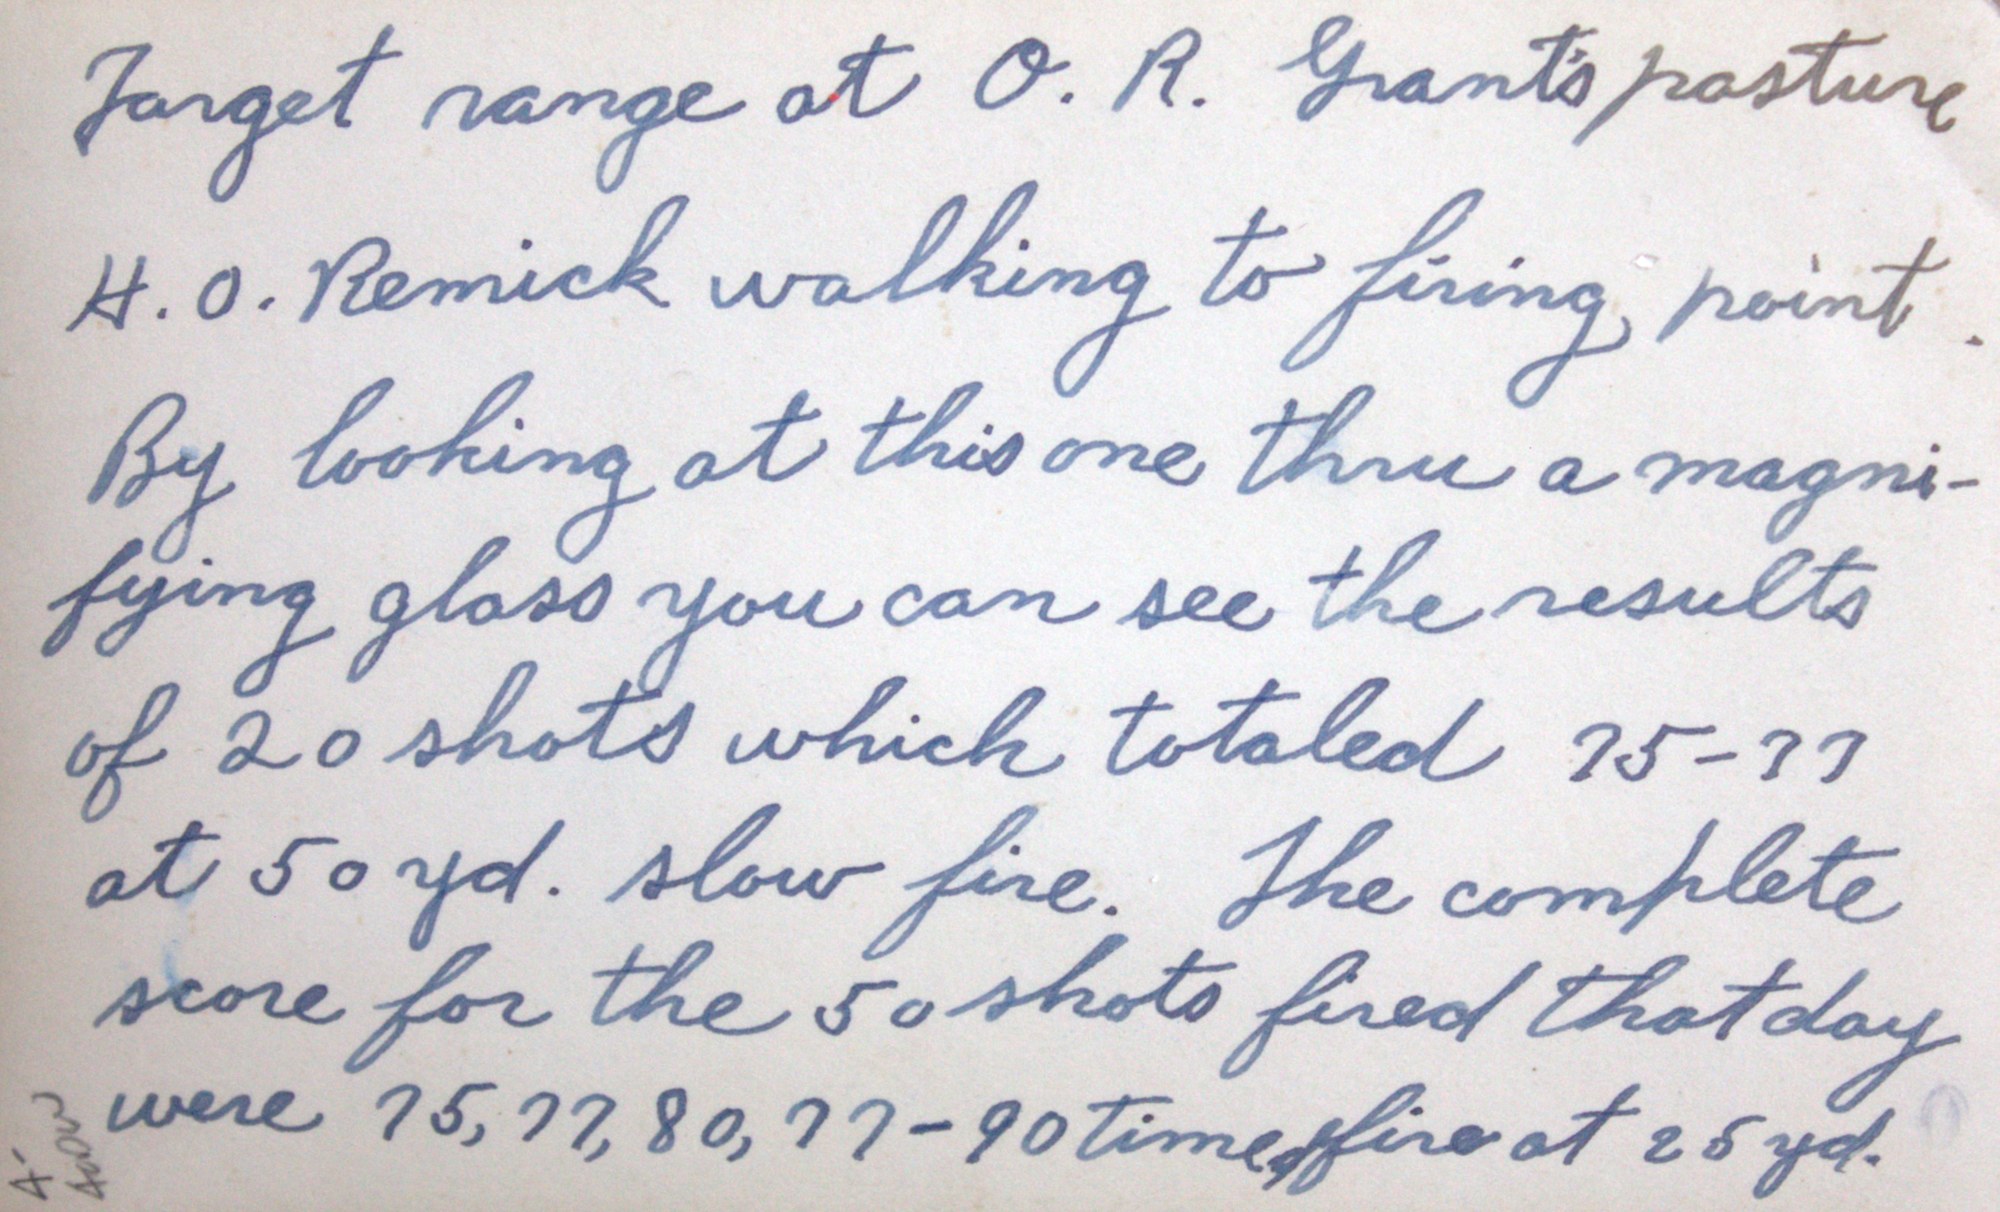 Target range at O. R. Grant's pasture
H. O. Remick walking to firing point.
By looking at this one thru a magni-
fying glass you can see the results
of 20 shots which totaled 75-77
at 50 yd. slow fire. The complete
score for the 50 shots fired that day
were 75, 77, 80, 77-90 time fire at 25 yd.